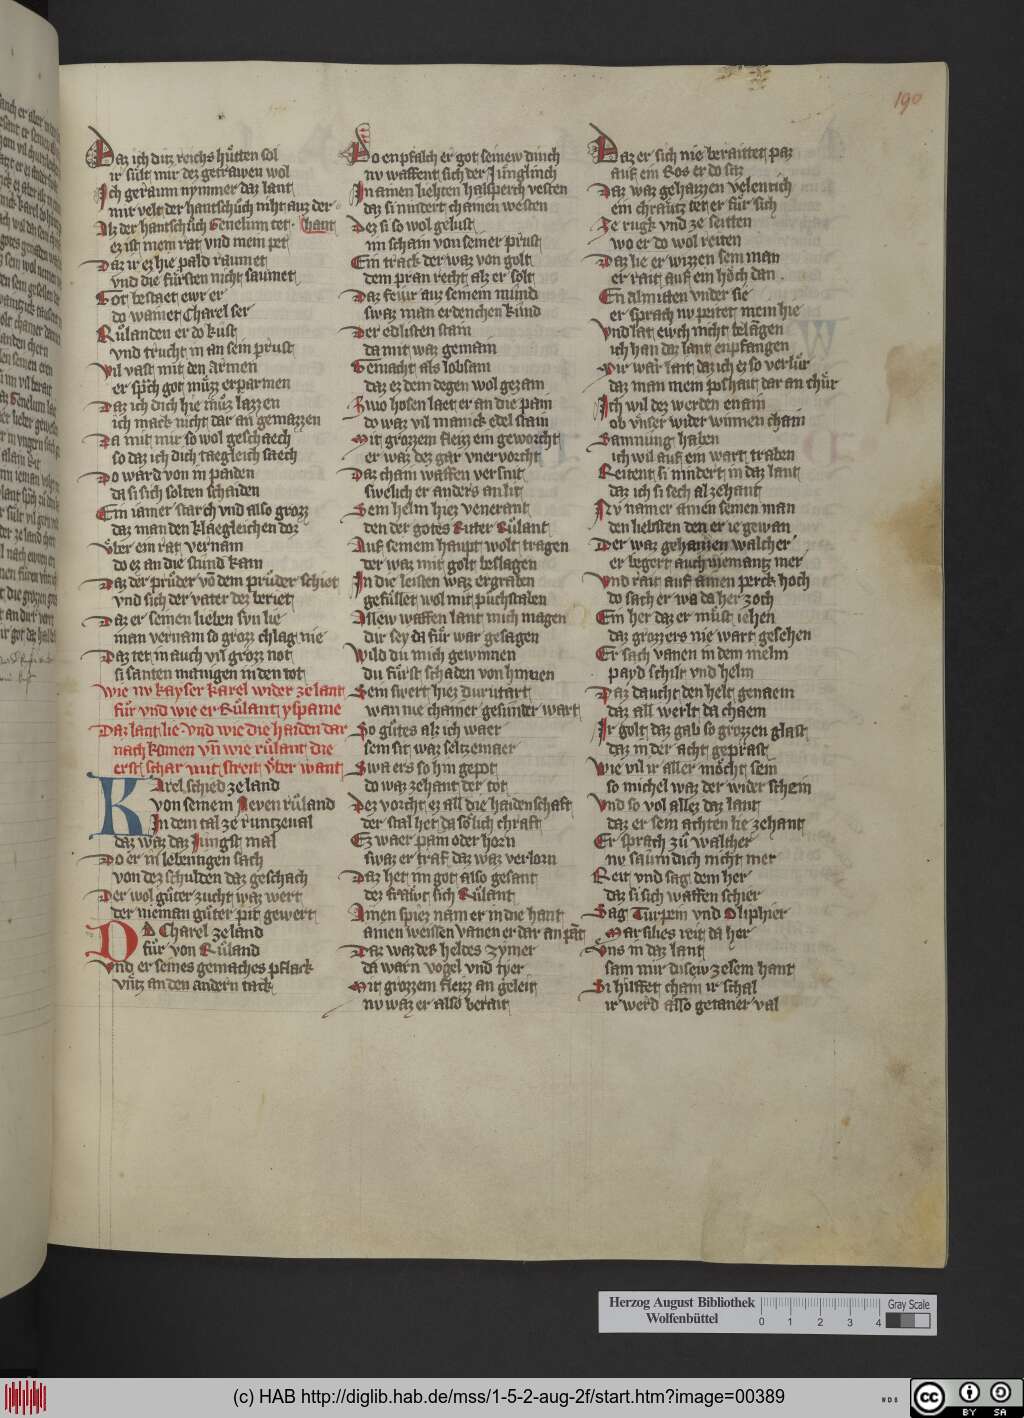 190
Daz ich ditz reichs hütten sol
ir sült mir dez getrawen wol
Ich geraum nymmer daz lant
mir velt der hantschůch niht auz der hant
Alz der hantschůch Genelun tet
ez ist mein rat vnd mein pet
Daz ir ez hie pald raumet
vnd die fürsten nicht saumet
Got bestaet ewr er
do wainet Charel ser
Růlanden er do kust
vnd trucht in an sein prust
Vil vast mit den armen
er sprch got müzz erparmen
Daz ich dich hie můz lazzen
ich mack nicht dar an gemazzen
Da mit mir so wol geschaech
so daz ich dich taegleich saech
Do ward von in paiden
da si sich solten schaiden
Ein iamer starch vnd also grozz
daz man den klaegleichen doz
Vber ein rat vernam
do ez an die stund kam
Daz der průder võ dem průder schiet
vnd sich der vater dez beriet
Daz er seinen lieben svn lie
man vernam so grozz chlag nie
Daz tet in auch vil grozz not
si santen manigen in den tot
Wie nv kayser karel wider ze lant
für vnd wie er Růlant yspanie
Daz lant lie vnd wie die haiden dar
nach komen vñ wie růlant die
erst schar mit streit vber want
Karel schied ze land
von seinem Neven růland
In dem tal ze runtzeual
daz waz daz Jungst mal
Do er in lebentigen sach
von dez schulden daz geschach
Der wol gůter zucht waz wert
der nieman gůter pit gewert
Do Charel ze land
für von Růland
Vnd er seines gemaches pflack
vntz an den andern tack
Do enpfalch er got seinew dinch
nv waffent sich der Junglinch
In ainen liehten halsperch vesten
daz si nindert chainen westen
Dez si so wol gelust
im scham von seiner prust
Ein track der waz von golt
dem pran recht alz er solt
Daz feiur auz seinem mund
swaz man erdenchen kund
Der edlisten stain
da mit waz gemain
Gemacht als lobsam
daz ez dem degen wol gezam
Zwo hosen laet er an die pain
do waz vil manick edel stain
Mit grozzem fleizz ein geworcht
er waz dez gar vnervorcht
Daz chain waffen versnit
swelich er anders an lit
Sein helm hiez venerant
den der gotes Ritter Růlant
Auf seinem haupt wolt tragen
der waz mit golt beslagen
In die leisten waz ergraben
gefüllet wol mit puchstaben
Allew waffen lant mich magen
dir sey da für war gesagen
Wild du mich gewinnen
du fürst schaden von hinnen
Sein swert hiez durndart
wan nie chainer gesmider wart
So gůtes alz ich waer
sein sit waz seltzeinaer
Swa ers so hin gepot
do waz zehant der tot
Dez vorcht ez all die haidenschaft
der stal het da sölich chraft
Ez waer pain oder horn
swaz er traf daz waz verlorn
Daz het im got also gesant
dez fräwt sich Růlant
Ainen spiez nam er in die hant
ainen weissen vanen er dar an pant
Daz waz des heldes zymer
da warn vogel vnd tyer
Mit grozzem fleizz an geleit
nv waz er also berait
Daz er sich nie beraittet paz
auf ein Ros er do saz
Daz waz gehaizzen velentich
ein chräutz tet er für sich
Ze rugk vnd ze seitten
wo er do wol reiten
Daz lie er wizzen sein man
er rait auf ein höch dan
En almitten vnder sie
er sprach nv peitet mein hie
Vnd lat ewch nicht belangen
ich han daz lant enpfangen
Mir war lait daz ich ez so verlür
daz man mein potschaft dar an chür
Ich wil dez werden enain
ob vnser wider winnen chain
Samnung haben
ich wil auf ein wart traben
Reitent si nindert in daz lant
daz ich si sech al zehant
Nv nam er ainen seinen man
den liebsten den er ie gewan
Der waz gehaizzen walther
er begert auch niemantz mer
Vnd rait auf ainen perck hoch
do sach er wa da her zoch
Ein her daz er můst iehen
daz grozzers nie wart gesehen
Er sach vanen in dem mein
payd schilt vnd helm
Daz daucht den helt genaem
daz all werlt da chaem
Ir golt daz gab so grozzen glast
daz in der acht geprast
Wie vil ir aller möcht sein
so michel waz der wider schein
Vnd so vol allez daz lant
daz er sein achten lie zehant
Er sprach zů walther
nv saum dich nicht mer
Reit vnd sag dem her
daz si sich waffen schier
Sag Turpein vnd Oliphier
Marsilies reit da her
Vns in daz lant
sam mir disew zesem hant
Si hilffet chain ir schal
ir werd also getaner val
Herzog August Bibliothek
Wolfenbüttel
0 1 2 3 4
Gray Scale
(c) HAB http://diglib.hab.de/mss/1-5-2-aug-2f/start.htm?image=00389
cc BY SA